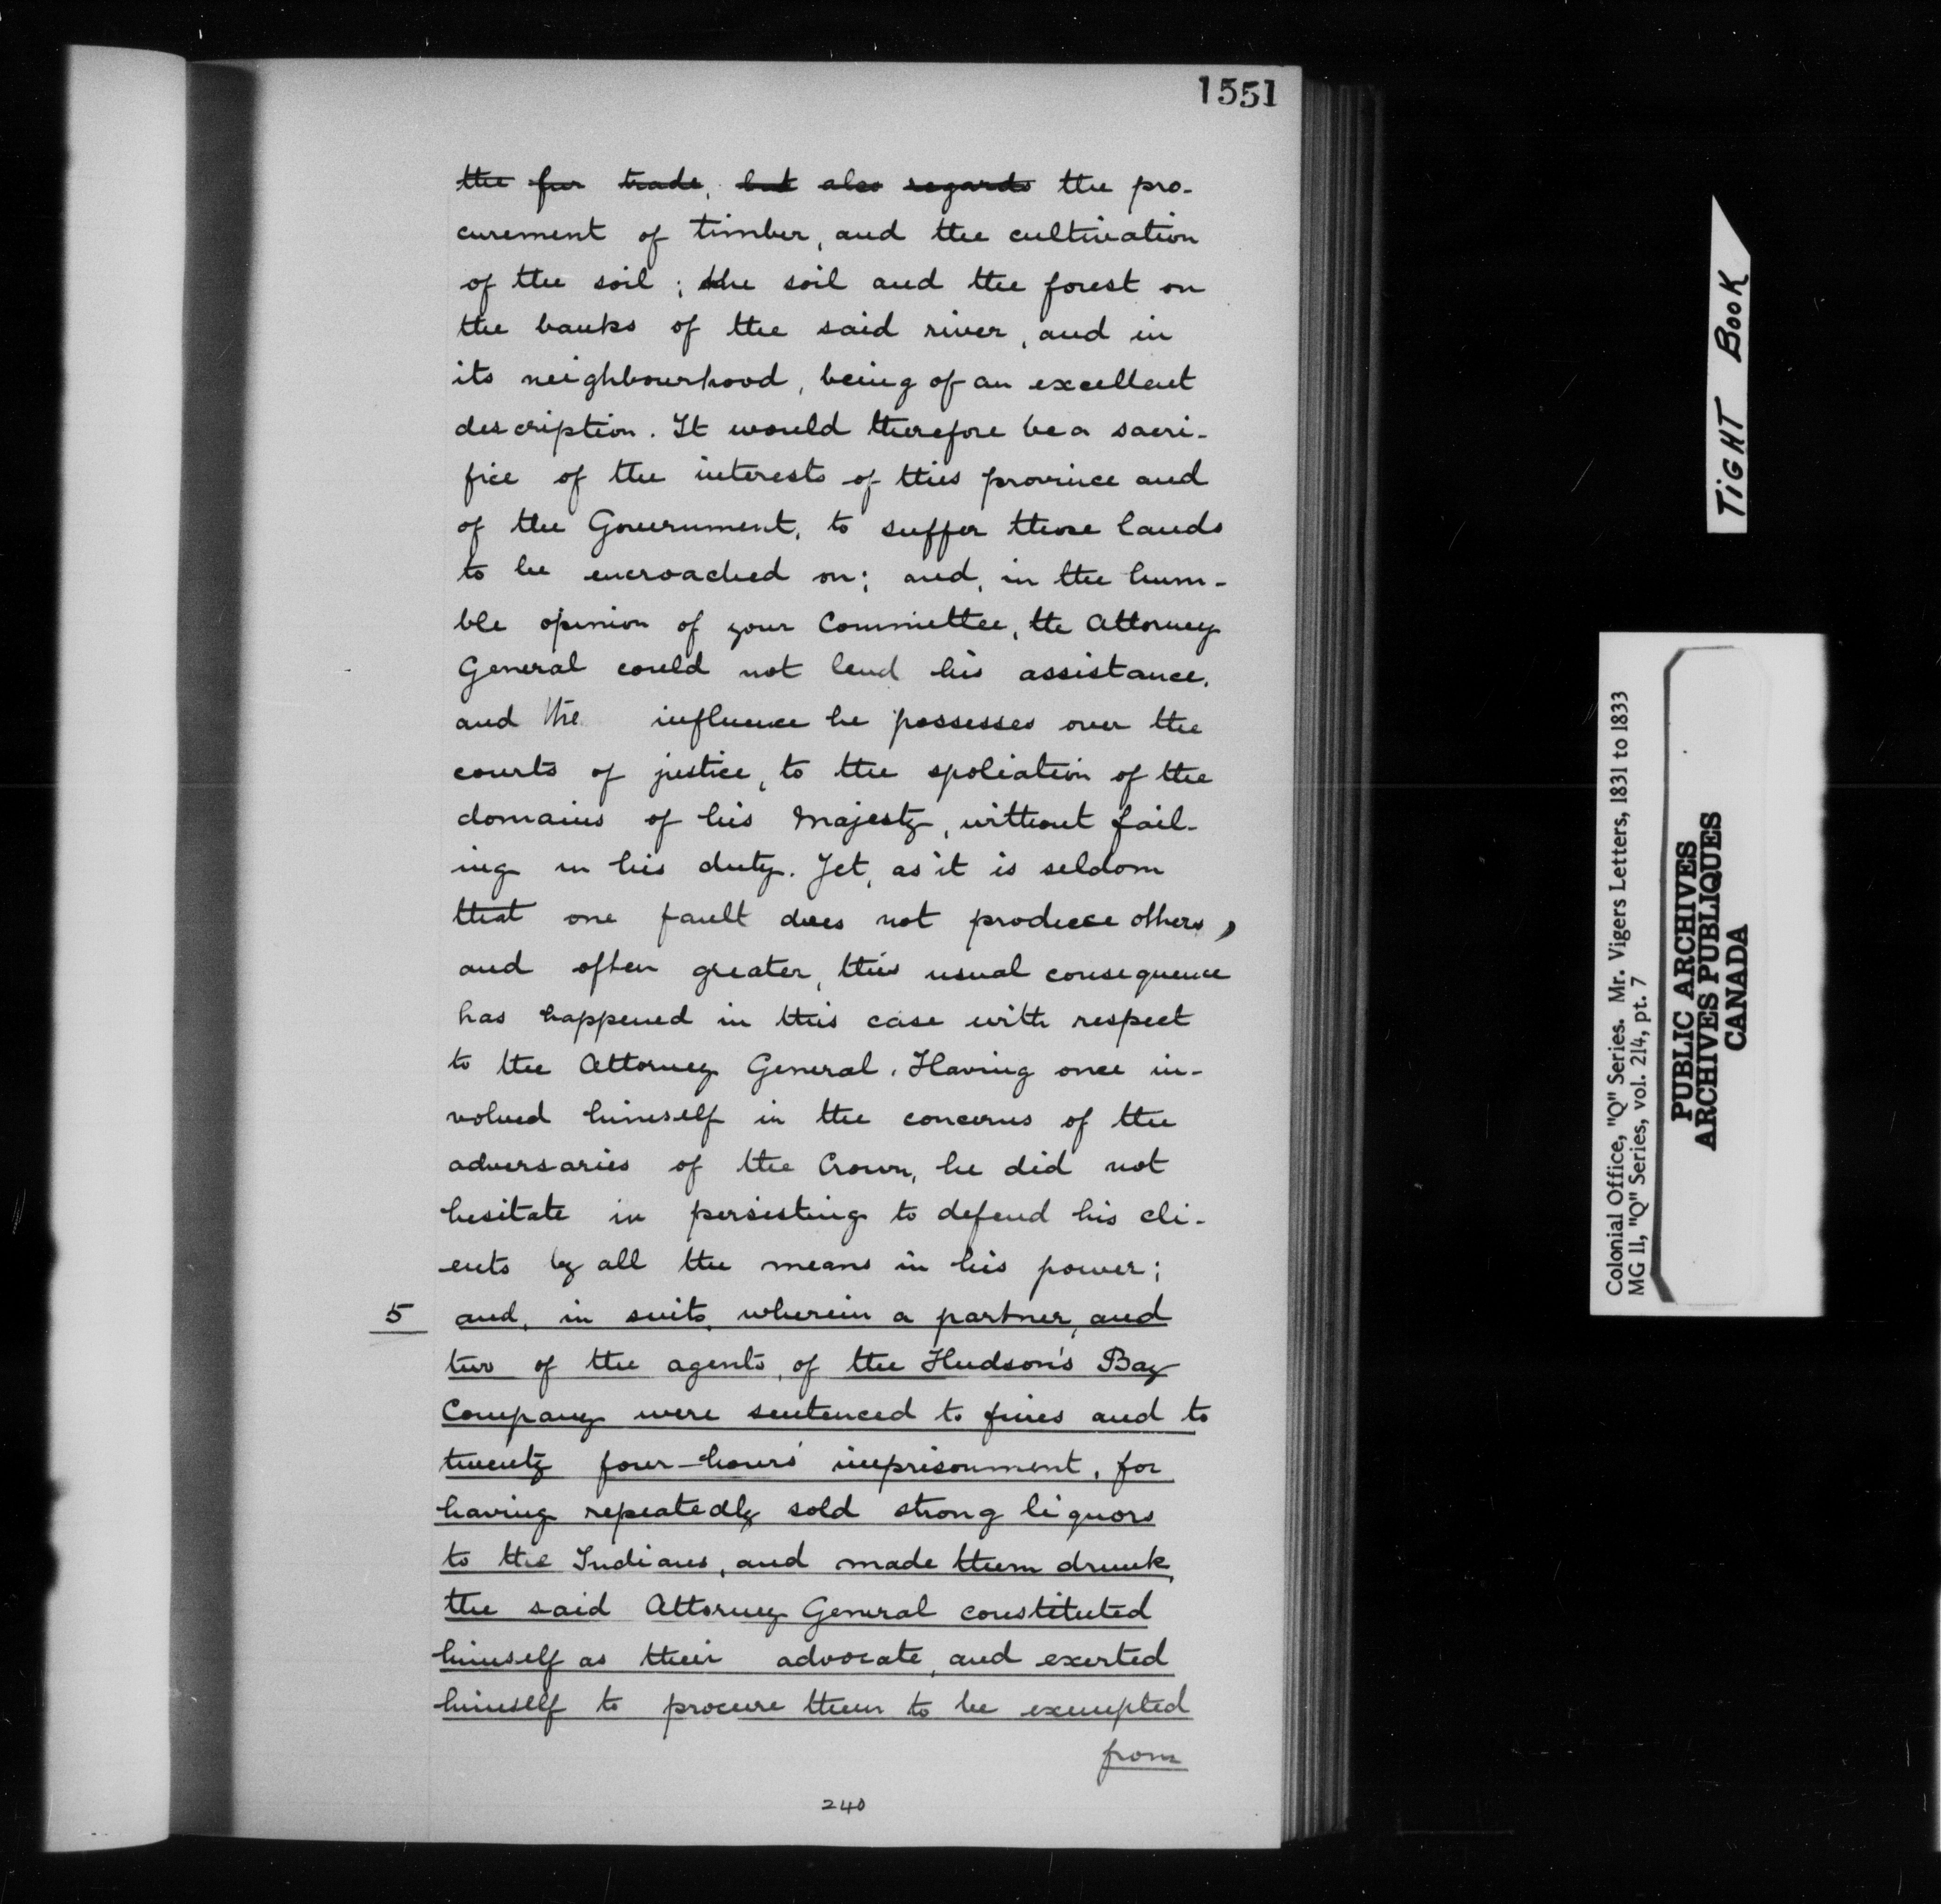 1551
the fur trade, but also regards the pro-
curement of timber, and the cultivation
of the soil; the soil and the forest on
the banks of the said river, and in
its neighbourhood, being of an excellent
description. It would therefore be a sacri-
fice of the interests of this province and
of the Government, to suffer those lands
to be encroached on; and, in the hum-
ble opinion of your Committee, the Attorney
General could not lend his assistance,
and the influence he possesses over the
courts of justice, to the spoliation of the
domains of his Majesty, without fail-
ing in his duty. Yet, as it is seldom
that one fault does not produce others,
and often greater, this usual consequence
has happened in this case with respect
to the Attorney General. Having once in-
volved himself in the concerns of the
adversaries of the Crown, he did not
hesitate in persisting to defend his cli-
ents by all the means in his power;
5 and, in suits, wherein a partner, and
two of the agents, of the Hudson's Bay
Company were sentenced to fines and to
twenty four-hours' imprisonment, for
having repeatedly sold strong liquors
to the Indians, and made them drunk,
the said Attorney General constituted
himself as their advocate, and exerted
himself to procure them to be exempted
from
240
TIGHT BOOK
Colonial Office, "Q" Series. Mr. Vigers Letters, 1831 to 1833
MG 11, "Q" Series, vol. 214, pt. 7
PUBLIC ARCHIVES
ARCHIVES PUBLIQUES
CANADA